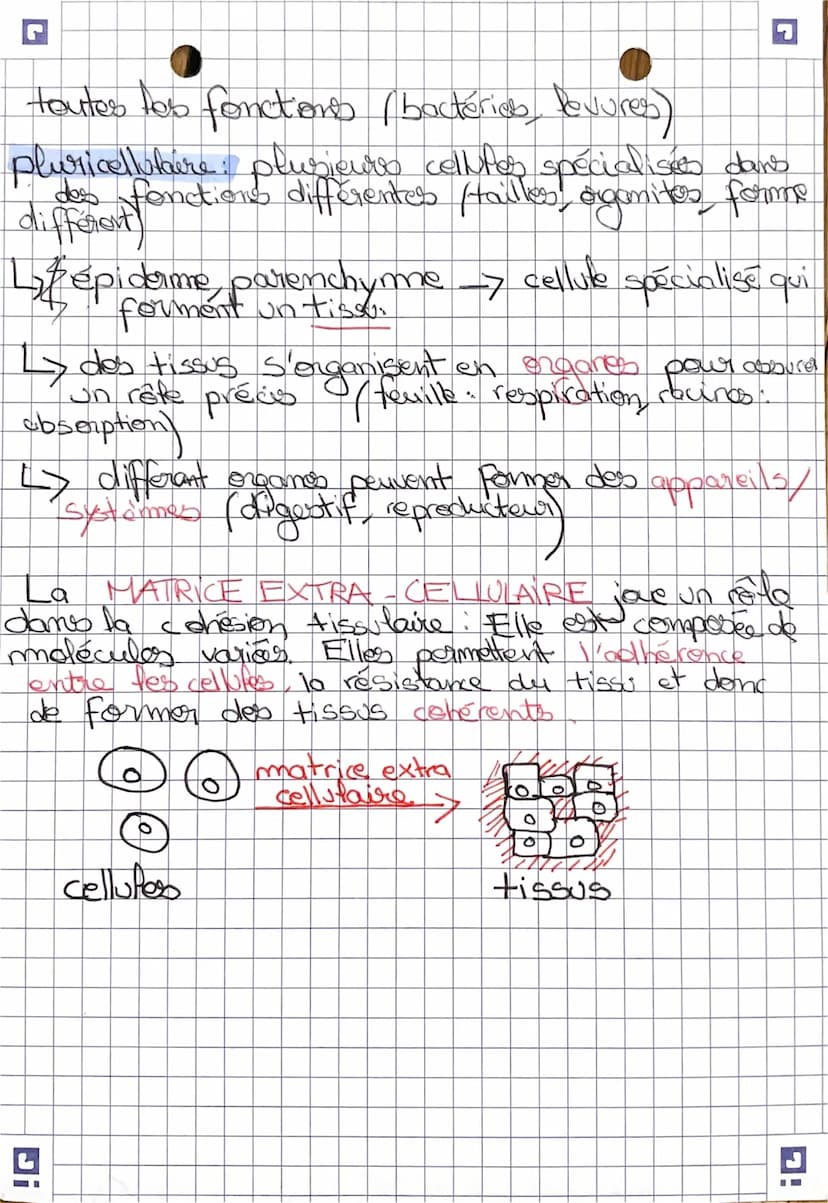 toutes les fonctions (bactéries, levures)
pluricellulaire : plusieurs cellules spécialisées dans
des fonctions différentes (tailles, organites, forme
différent)
↳ épiderme, parenchyme → cellule spécialisé qui
forment un tissu.
↳ des tissus s'organisent en organes pour assurer
un rôle précis (feuille : respiration, racines :
absorption)
↳ différant organes peuvent former des appareils/
systèmes (digestif, reproducteur)
La MATRICE EXTRA-CELLULAIRE joue un rôle
dans la cohésion tissulaire : Elle est composée de
molécules variées. Elles permettent l'adhérence
entre les cellules, la résistance du tissu et donc
de former des tissus cohérents.
matrice extra
cellulaire →
cellules
tissus